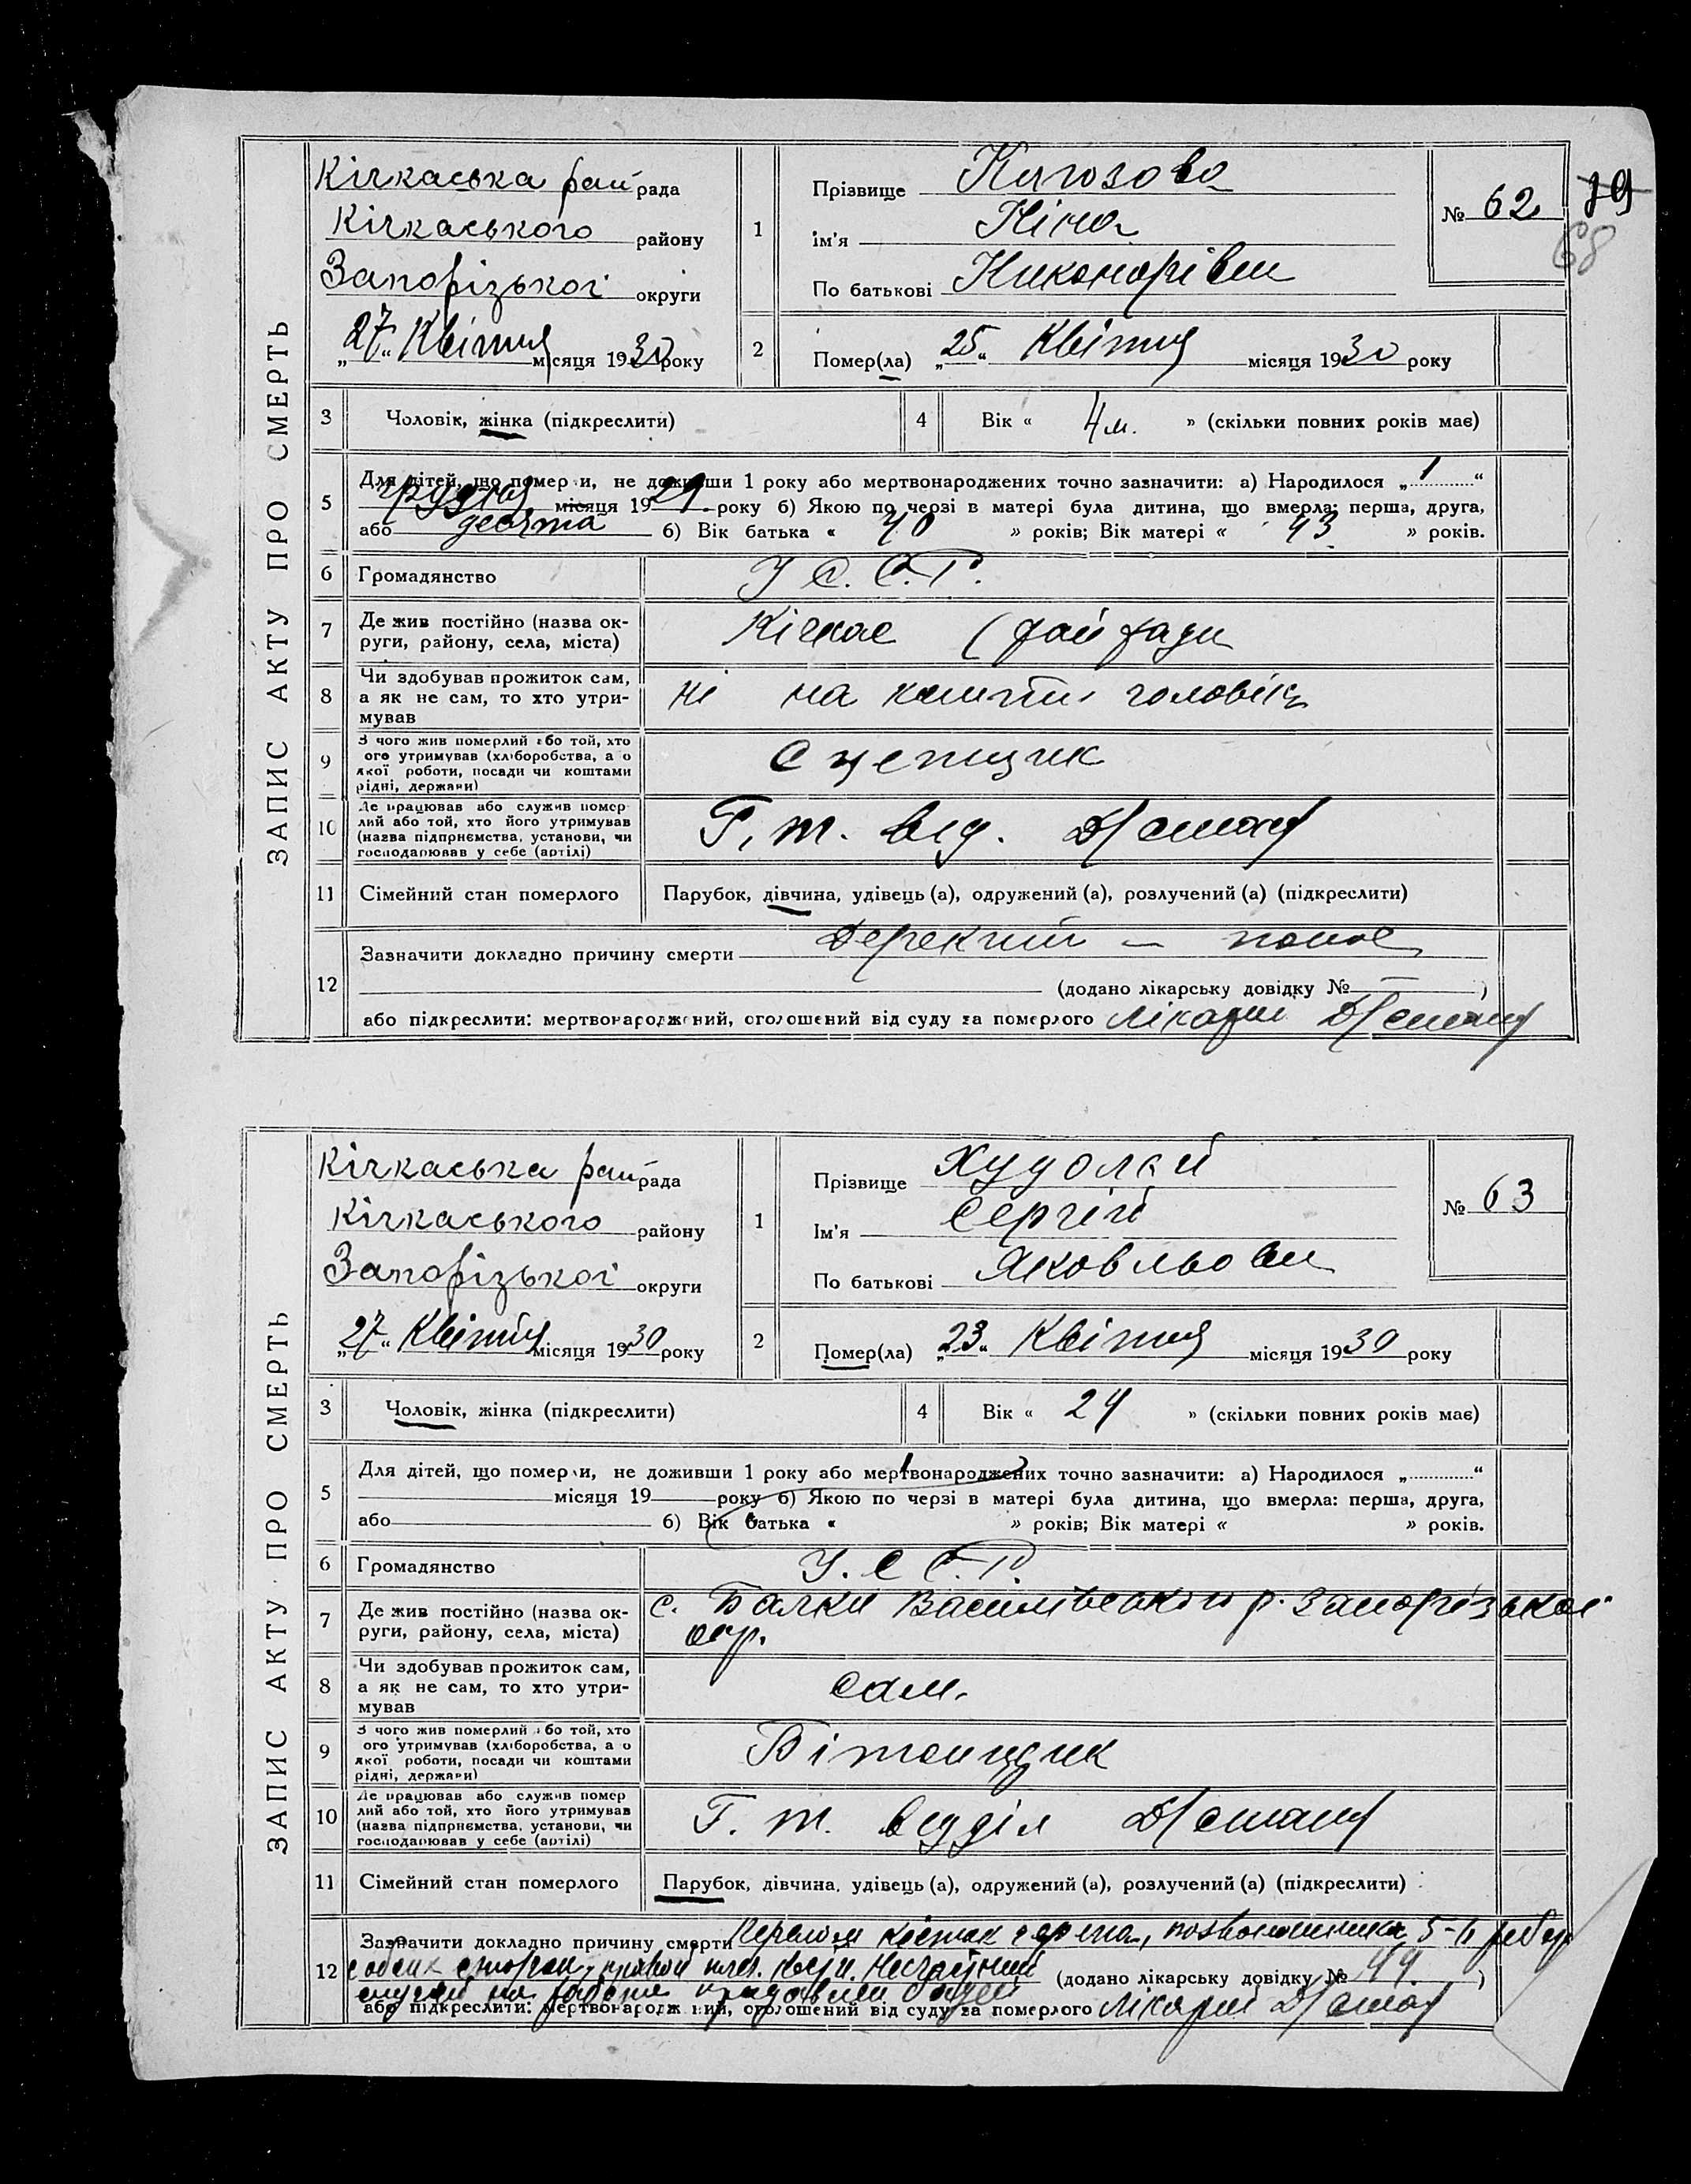 ЗАПИС АКТУ ПРО СМЕРТЬ
Кічкаська рай рада
Кічкаського району
Запорізької округи
„27“ Квітня місяця 1930 року
1
Прізвище
Ім'я Ніна
По батькові Никонорівни
№ 62
19
68
2
Помер(ла) „25“ Квітня місяця 1930 року
3 Чоловік, жінка (підкреслити)
4 Вік « 4 м. » (скільки повних років має)
5 Для дітей, що померли, не доживши 1 року або мертвонароджених точно зазначити: а) Народилося „1“
грудня місяця 1929 року б) Якою по черзі в матері була дитина, що вмерла: перша, друга,
або десята б) Вік батька « 40 » років; Вік матері « 43 » років.
6 Громадянство У С. С. Р.
7 Де жив постійно (назва ок-
руги, району, села, міста) Кічкас (рай ради
8 Чи здобував прожиток сам,
а як не сам, то хто утри-
мував ні на кошти чоловіка
9 З чого жив померлий або той, хто
ого утримував (хліборобства, а о
якої роботи, посади чи коштами
рідні, держави) Сцепщик
10 Де працював або служив помер
лий або той, хто його утримував
(назва підприємства, установи, чи
господарював у себе (артілі) Г. т. від. Д/стану
11 Сімейний стан померлого Парубок, дівчина, удівець (а), одружений (а), розлучений (а) (підкреслити)
12 Зазначити докладно причину смерти —
(додано лікарську довідку № — )
або підкреслити: мертвонароджений, оголошений від суду за померлого Лікарні Д/стану
ЗАПИС АКТУ ПРО СМЕРТЬ
Кічкаська рай рада
Кічкаського району
Запорізької округи
„27“ Квітня місяця 1930 року
1
Прізвище Худолей
Ім'я Сергій
По батькові Яковльови
№ 63
2
Помер(ла) „23“ Квітня місяця 1930 року
3 Чоловік, жінка (підкреслити)
4 Вік « 24 » (скільки повних років має)
5 Для дітей, що померли, не доживши 1 року або мертвонароджених точно зазначити: а) Народилося „ “
місяця 19 року б) Якою по черзі в матері була дитина, що вмерла: перша, друга,
або б) Вік батька « » років; Вік матері « » років.
6 Громадянство У. С С. Р.
7 Де жив постійно (назва ок-
руги, району, села, міста) с. Балки Василівського р. Запорізької
окр.
8 Чи здобував прожиток сам,
а як не сам, то хто утри-
мував сам.
9 З чого жив померлий або той, хто
ого утримував (хліборобства, а о
якої роботи, посади чи коштами
рідні, держави) Бітонщик
10 Де працював або служив помер
лий або той, хто його утримував
(назва підприємства, установи, чи
господарював у себе (артілі) Г. т. відділ Д/стану
11 Сімейний стан померлого Парубок, дівчина, удівець (а), одружений (а), розлучений (а) (підкреслити)
12 Зазначити докладно причину смерти Перелом кісток черепа, позвоночника, 5-6 ребер
с обеих сторон, правой Несчастний (додано лікарську довідку № 44 )
случай на работе
або підкреслити: мертвонароджений, оголошений від суду за померлого Лікарні Д/стану